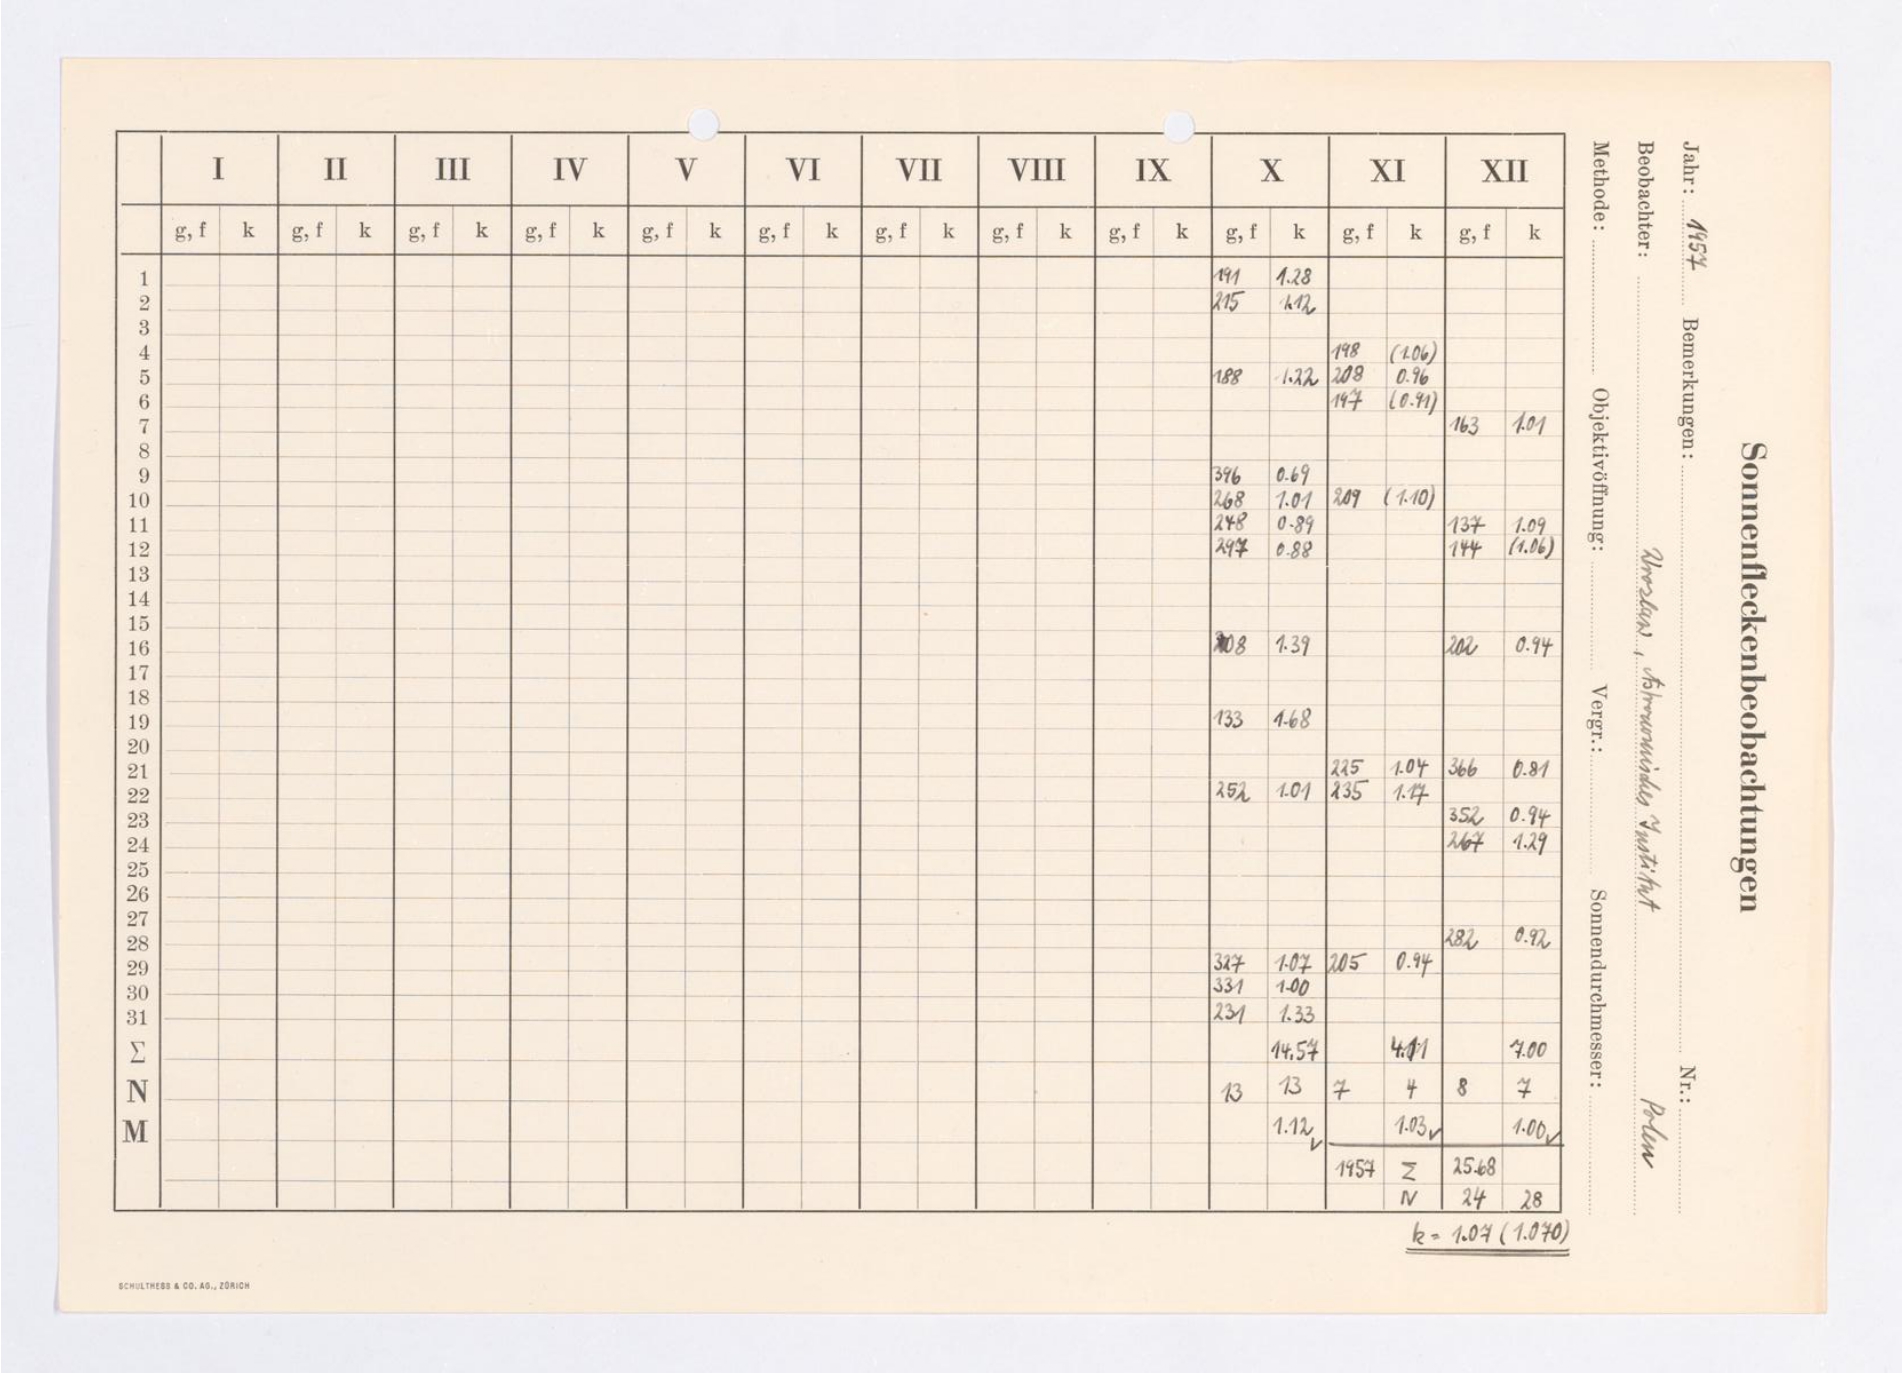 Sonnenfleckenbeobachtungen
Jahr: 1957 Bemerkungen: Nr.:
Beobachter: Wroclaw, Astronomisches Institut Polen
Methode: Objektivöffnung: Vergr.: Sonnendurchmesser:
I II III IV V VI VII VIII IX X XI XII
g, f k g, f k g, f k g, f k g, f k g, f k g, f k g, f k g, f k g, f k g, f k g, f k
1 191 1.28
2 215 1.12
3
4 198 (1.06)
5 188 1.22 208 0.96
6 197 (0.91)
7 163 1.01
8
9 396 0.69
10 268 1.01 209 (1.10)
11 248 0.89 137 1.09
12 297 0.88 144 (1.06)
13
14
15
16 208 1.39 202 0.94
17
18
19 133 1.68
20
21 225 1.04 366 0.81
22 252 1.01 235 1.17
23 352 0.94
24 267 1.29
25
26
27
28 282 0.92
29 327 1.07 205 0.94
30 331 1.00
31 231 1.33
Σ 14.57 4.11 7.00
N 13 13 7 4 8 7
M 1.12 1.03 1.00
1957 Σ 25.68
N 24 28
k = 1.07 (1.070)
SCHULTHESS & CO. AG., ZÜRICH